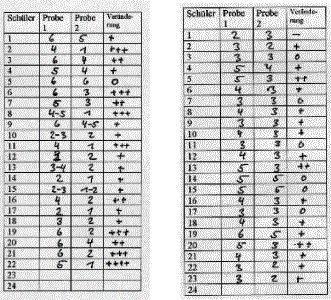 Schüler Probe 1 Probe 2 Verände-rung
1 6 5 +
2 4 1 +++
3 6 4 ++
4 5 4 +
5 6 6 0
6 6 3 +++
7 5 3 ++
8 4-5 1 +++
9 6 4-5 +
10 2-3 2 +
11 4 1 +++
12 3 2 +
13 3-4 2 +
14 2 1 +
15 2-3 1-2 +
16 4 2 ++
17 2 1 +
18 3 2 +
19 6 2 +++
20 6 4 ++
21 6 2 +++
22 5 1 ++++
23
24
Schüler Probe 1 Probe 2 Verände-rung
1 2 3 -
2 3 2 +
3 3 3 0
4 5 4 +
5 5 3 ++
6 4 3 +
7 3 3 0
8 4 3 +
9 3 +
10 4 3 +
11 3 3 0
12 4 3 +
13 5 3 ++
14 5 5 0
15 5 0
16 4 3 +
17 3 3 0
18 4 3 +
19 6 5 +
20 5 3 ++
21 4 3 +
22 3 2 +
23 3 2 +
24